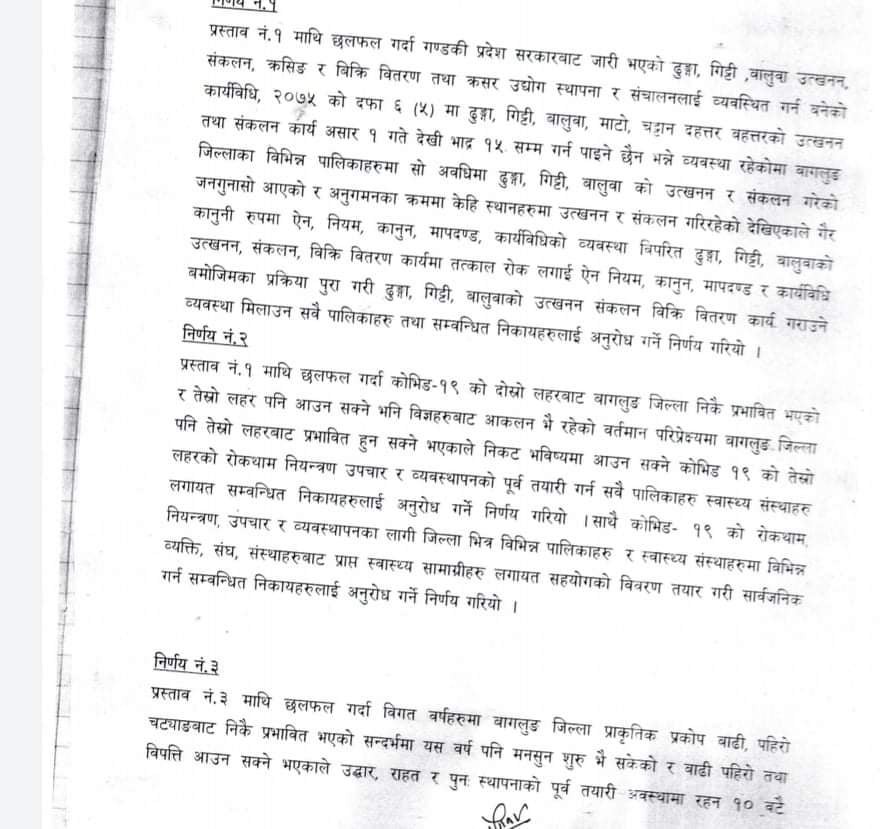 निर्णय नं.१
प्रस्ताव नं.१ माथि छलफल गर्दा गण्डकी प्रदेश सरकारबाट जारी भएको ढुङ्गा, गिट्टी ,वालुवा उत्खनन,
संकलन, क्रसिङ र बिक्रि वितरण तथा क्रसर उद्योग स्थापना र संचालनलाई व्यवस्थित गर्न बनेको
कार्यविधि, २०७५ को दफा ६ (५) मा ढुङ्गा, गिट्टी, बालुवा, माटो, चट्टान दहत्तर वहत्तरको उत्खनन
तथा संकलन कार्य असार १ गते देखी भाद्र १५ सम्म गर्न पाइने छैन भन्ने व्यवस्था रहेकोमा बागलुङ
जिल्लाका विभिन्न पालिकाहरुमा सो अवधिमा ढुङ्गा, गिट्टी, बालुवा को उत्खनन र संकलन गरेको
जनगुनासो आएको र अनुगमनका क्रममा केहि स्थानहरुमा उत्खनन र संकलन गरिरहेको देखिएकाले गैर
कानुनी रुपमा ऐन, नियम, कानुन, मापदण्ड, कार्यविधिको व्यवस्था विपरित ढुङ्गा, गिट्टी, बालुवाको
उत्खनन, संकलन, विक्रि वितरण कार्यमा तत्काल रोक लगाई ऐन नियम, कानुन, मापदण्ड र कार्यविधि
बमोजिमका प्रक्रिया पुरा गरी ढुङ्गा, गिट्टी, बालुवाको उत्खनन संकलन विक्रि वितरण कार्य गराउने
व्यवस्था मिलाउन सवै पालिकाहरु तथा सम्वन्धित निकायहरुलाई अनुरोध गर्ने निर्णय गरियो ।
निर्णय नं.२
प्रस्ताव नं.१ माथि छलफल गर्दा कोभिड-१९ को दोस्रो लहरबाट वागलुङ जिल्ला निकै प्रभावित भएको
र तेस्रो लहर पनि आउन सक्ने भनि विज्ञहरुबाट आकलन भै रहेको वर्तमान परिप्रेक्ष्यमा वागलुङ जिल्ला
पनि तेस्रो लहरबाट प्रभावित हुन सक्ने भएकाले निकट भविष्यमा आउन सक्ने कोभिड १९ को तेस्रो
लहरको रोकथाम नियन्त्रण उपचार र व्यवस्थापनको पूर्व तयारी गर्न सवै पालिकाहरु स्वास्थ्य संस्थाहरु
लगायत सम्वन्धित निकायहरुलाई अनुरोध गर्ने निर्णय गरियो ।साथै कोभिड- १९ को रोकथाम,
नियन्त्रण, उपचार र व्यवस्थापनका लागी जिल्ला भित्र विभिन्न पालिकाहरु र स्वास्थ्य संस्थाहरुमा विभिन्न
व्यक्ति, संघ, संस्थाहरुबाट प्राप्त स्वास्थ्य सामाग्रीहरु लगायत सहयोगको विवरण तयार गरी सार्वजनिक
गर्न सम्वन्धित निकायहरुलाई अनुरोध गर्ने निर्णय गरियो ।
निर्णय नं.३
प्रस्ताव नं.३ माथि छलफल गर्दा विगत वर्षहरुमा बागलुङ जिल्ला प्राकृतिक प्रकोप बाढी, पहिरो
चट्याङबाट निकै प्रभावित भएको सन्दर्भमा यस वर्ष पनि मनसुन शुरु भै सकेको र वाढी पहिरो तथा
विपत्ति आउन सक्ने भएकाले उद्धार, राहत र पुनः स्थापनाको पूर्व तयारी अवस्थामा रहन १० वटै